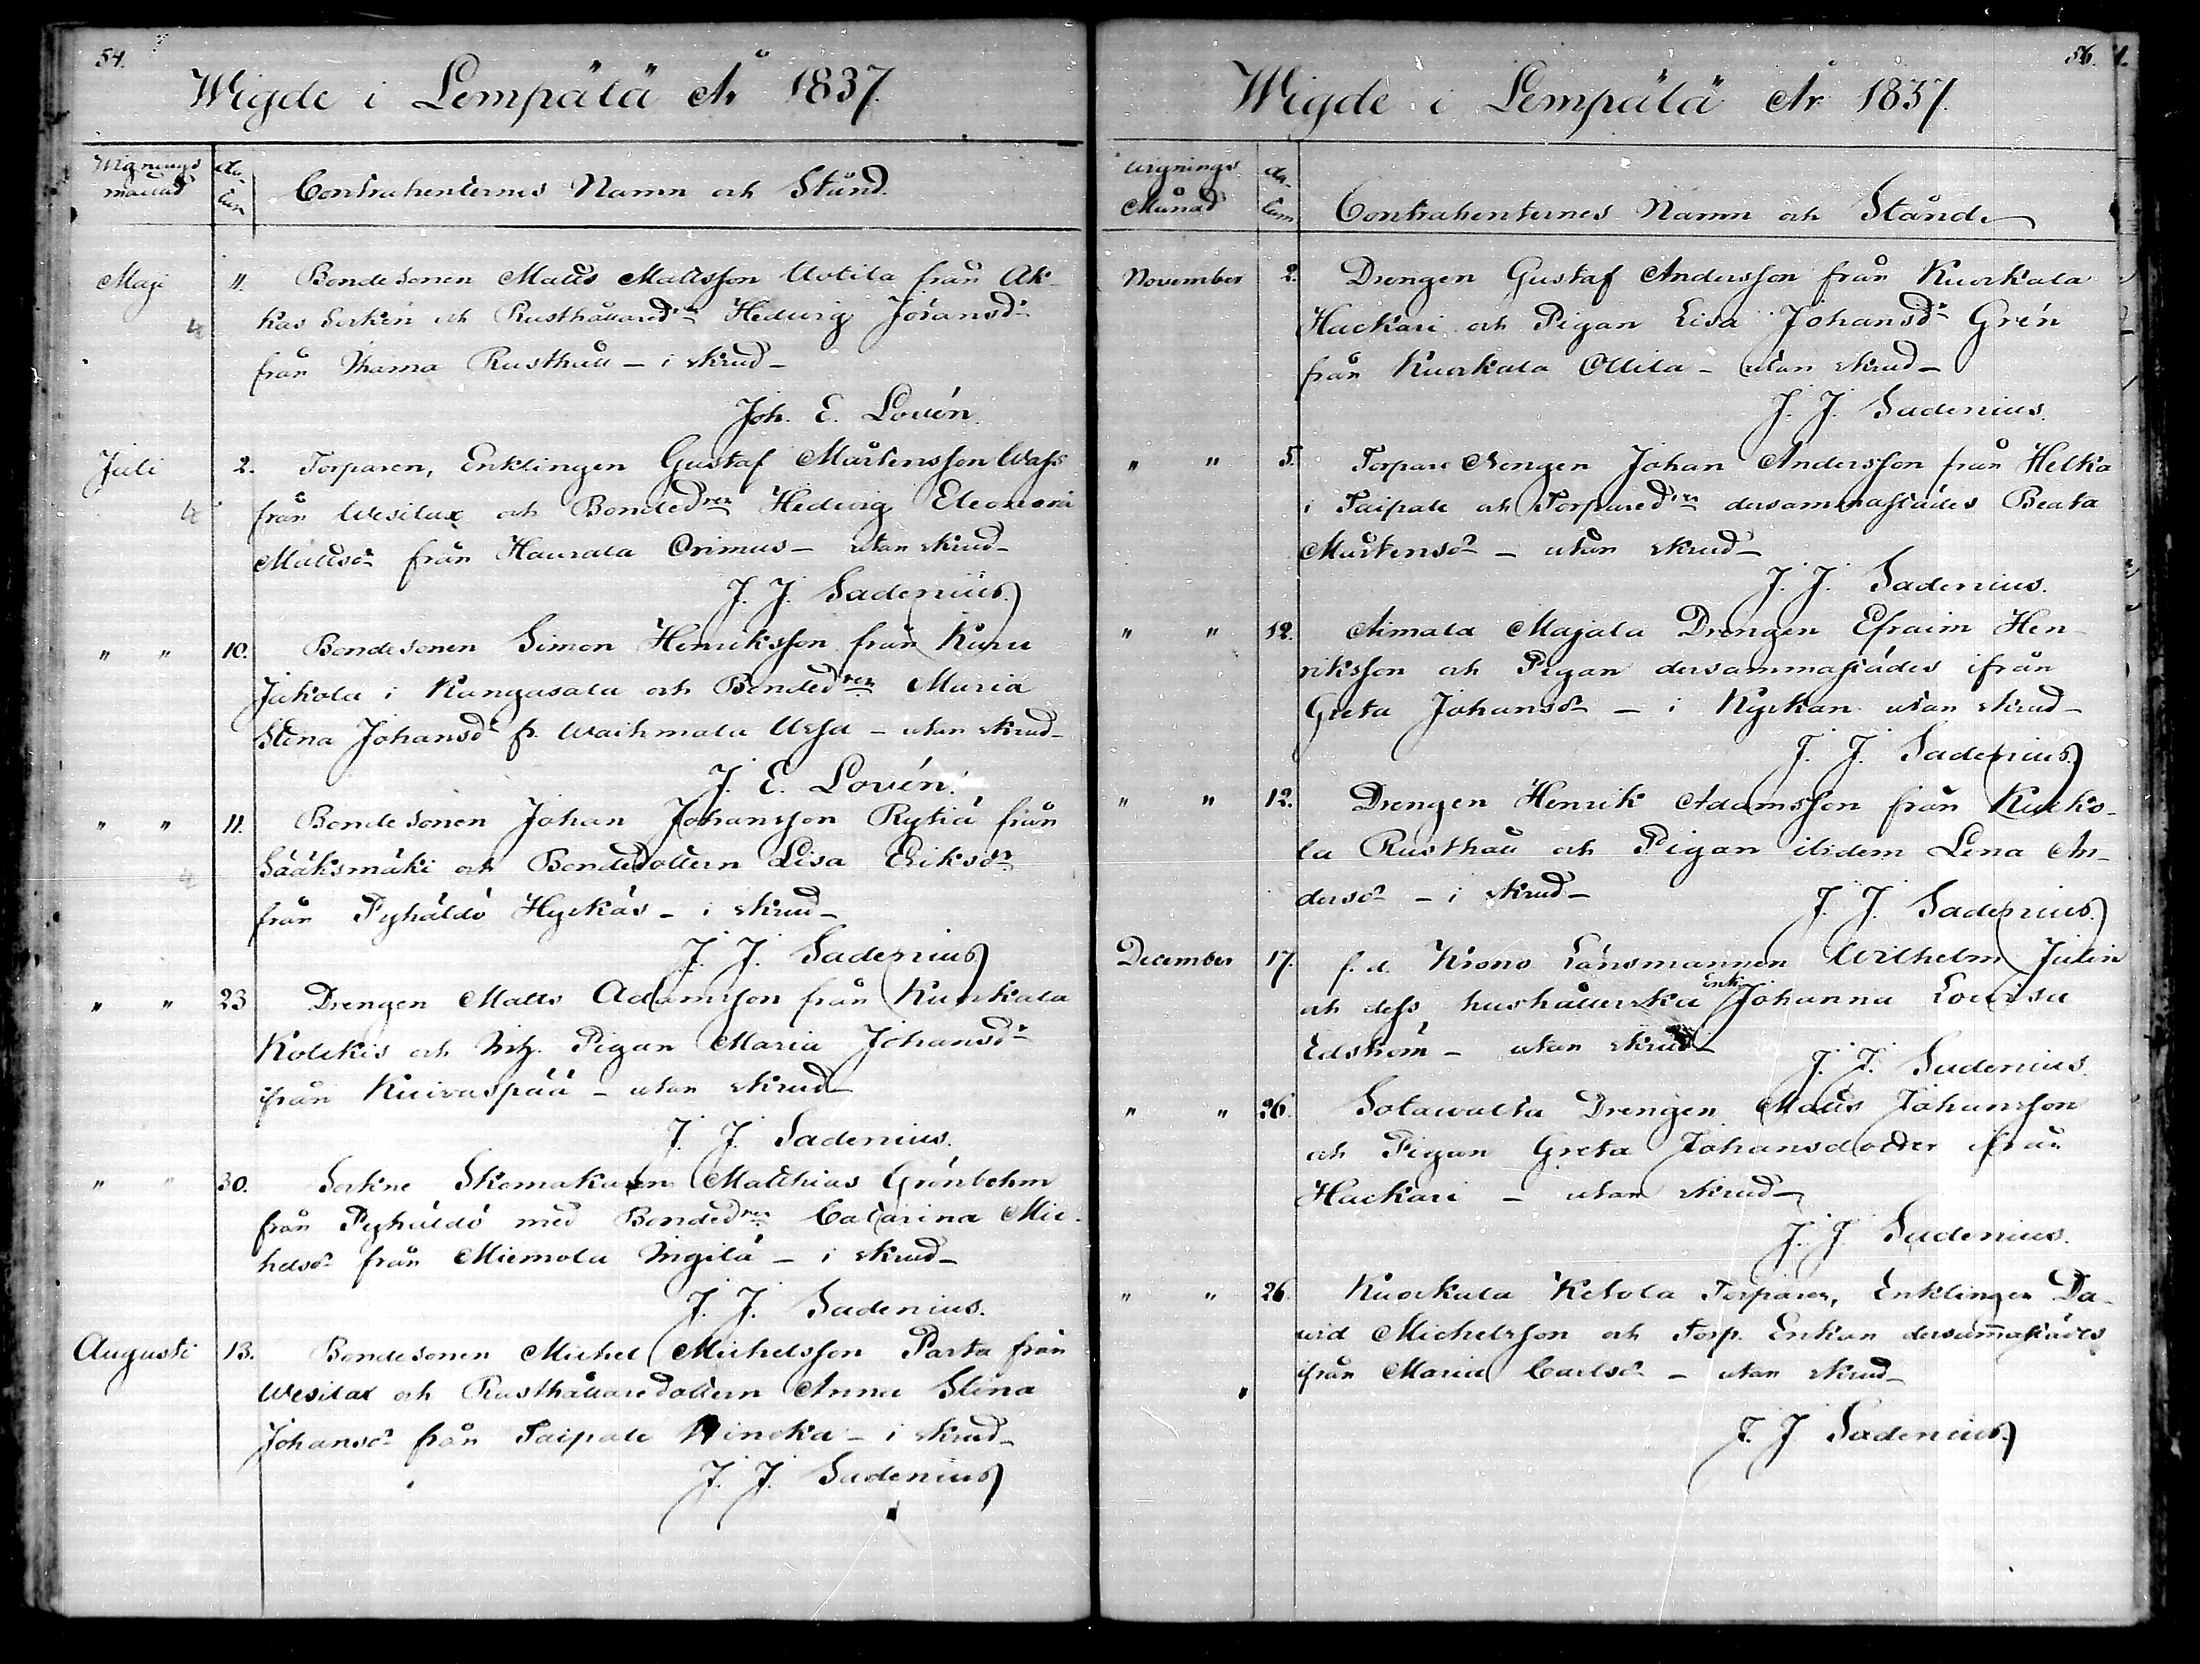 54.
Wigde i Lempälä År 1837.
Wignings månad
Datum
Contrahenternes Namn och Stånd.
Maji 11. Bondesonen Matts Mattsson Uotila från Ak-
kas Socken och Rusthållaredrn Hedwig Jöransdr
från Rusthåll – i skrud –
Joh. E. Lovén.
Juli 2. Torparen, Enklingen Gustaf Mårtensson Wass
från Wesilax och Bondedren Hedwig Eleonora
Mattsdr från Haurala Orimus – utan skrud –
J. J. Sadenius.
" " 10. Bondesonen Simon Henriksson från Kuru
Jakola i Kangasala och Bondedren Maria
Stina Johansdr fr. Waihmala – utan skrud –
J. E. Lovén.
" " 11. Bondesonen Johan Johansson Rytiä från
Sääksmäki och Bondedottern Lisa Eriksdr
från Pyhäldö Hyrkäs – i skrud –
J. J. Sadenius
" " 23 Drengen Matts Adamsson från Kuorkala
och Pigan Maria Johansdr
ifrån Kuivaspää – utan skrud –
J. J. Sadenius.
" " 30. Sockne Skomakaren Matthias Grönbohm
från Pyhäldö med Bondedren Catarina Mic-
helsdr från Miemola Ingilä – i skrud –
J. J. Sadenius.
Augusti 13. Bondesonen Michel Michelsson Parta från
Wesilax och Rusthållaredottern Anna Stina
Johansdr från Taipale – i skrud –
J. J. Sadenius
56.
Wigde i Lempälä År 1837.
Wignings Månad
Datum
Contrahenternes Namn och Stånd.
November 2. Drengen Gustaf Andersson från Kuorkala
Hackari och Pigan Lisa Johansdr Grén
från Kuorkala Ollila – utan skrud –
J. J. Sadenius.
" " 5. Torpare drengen Johan Andersson från Helka
i Taipale och Torparedrn dersammastädes Beata
Mårtensdr – utan skrud –
J. J. Sadenius.
" " 12. Aimala Majala Drengen Efraim Hen-
riksson och Pigan dersammastädes ifrån
Greta Johansdr – i Kyrkan utan skrud –
J. J. Sadenius
" " 12. Drengen Henrik Adamsson från Kucko-
la Rusthåll och Pigan ibidem Lena An-
dersdr – i skrud –
J. J. Sadenius.
December 17. f.d. Krono Länsmannen Wilhelm Julin
och dess hushållerska Enk. Johanna Lovisa
Edström – utan skrud –
J. J. Sadenius.
" " 26. Sotavalta Drengen Matts Johansson
och Pigan Greta Johansdotter ifrån
Hackari – utan skrud –
J. J. Sadenius.
" " 26. Kuorkala Ketola Torparen, Enklingen Da-
vid Michelsson och Torp. Enkan dersammastädes
ifrån Maria Carlsdr – utan skrud –
J. J. Sadenius.